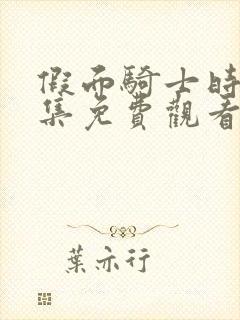 假面騎士時
集免費觀看
葉亦行